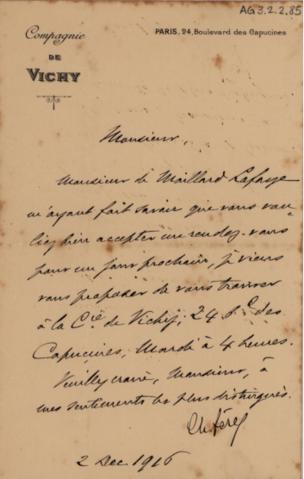 AG3.2.2.85
Compagnie
DE
VICHY
PARIS, 24, Boulevard des Capucines
Monsieur,
Monsieur de Maillard Lafaye
m'ayant fait savoir que vous vou-
liez bien accepter un rendez-vous
pour un jour prochain, je viens
vous proposer de vous trouver
à la Cie de Vichy, 24 Bd des
Capucines, Mardi à 4 heures.
Veuillez croire, Monsieur, à
mes sentiments les plus distingués.
2 Dec. 1916